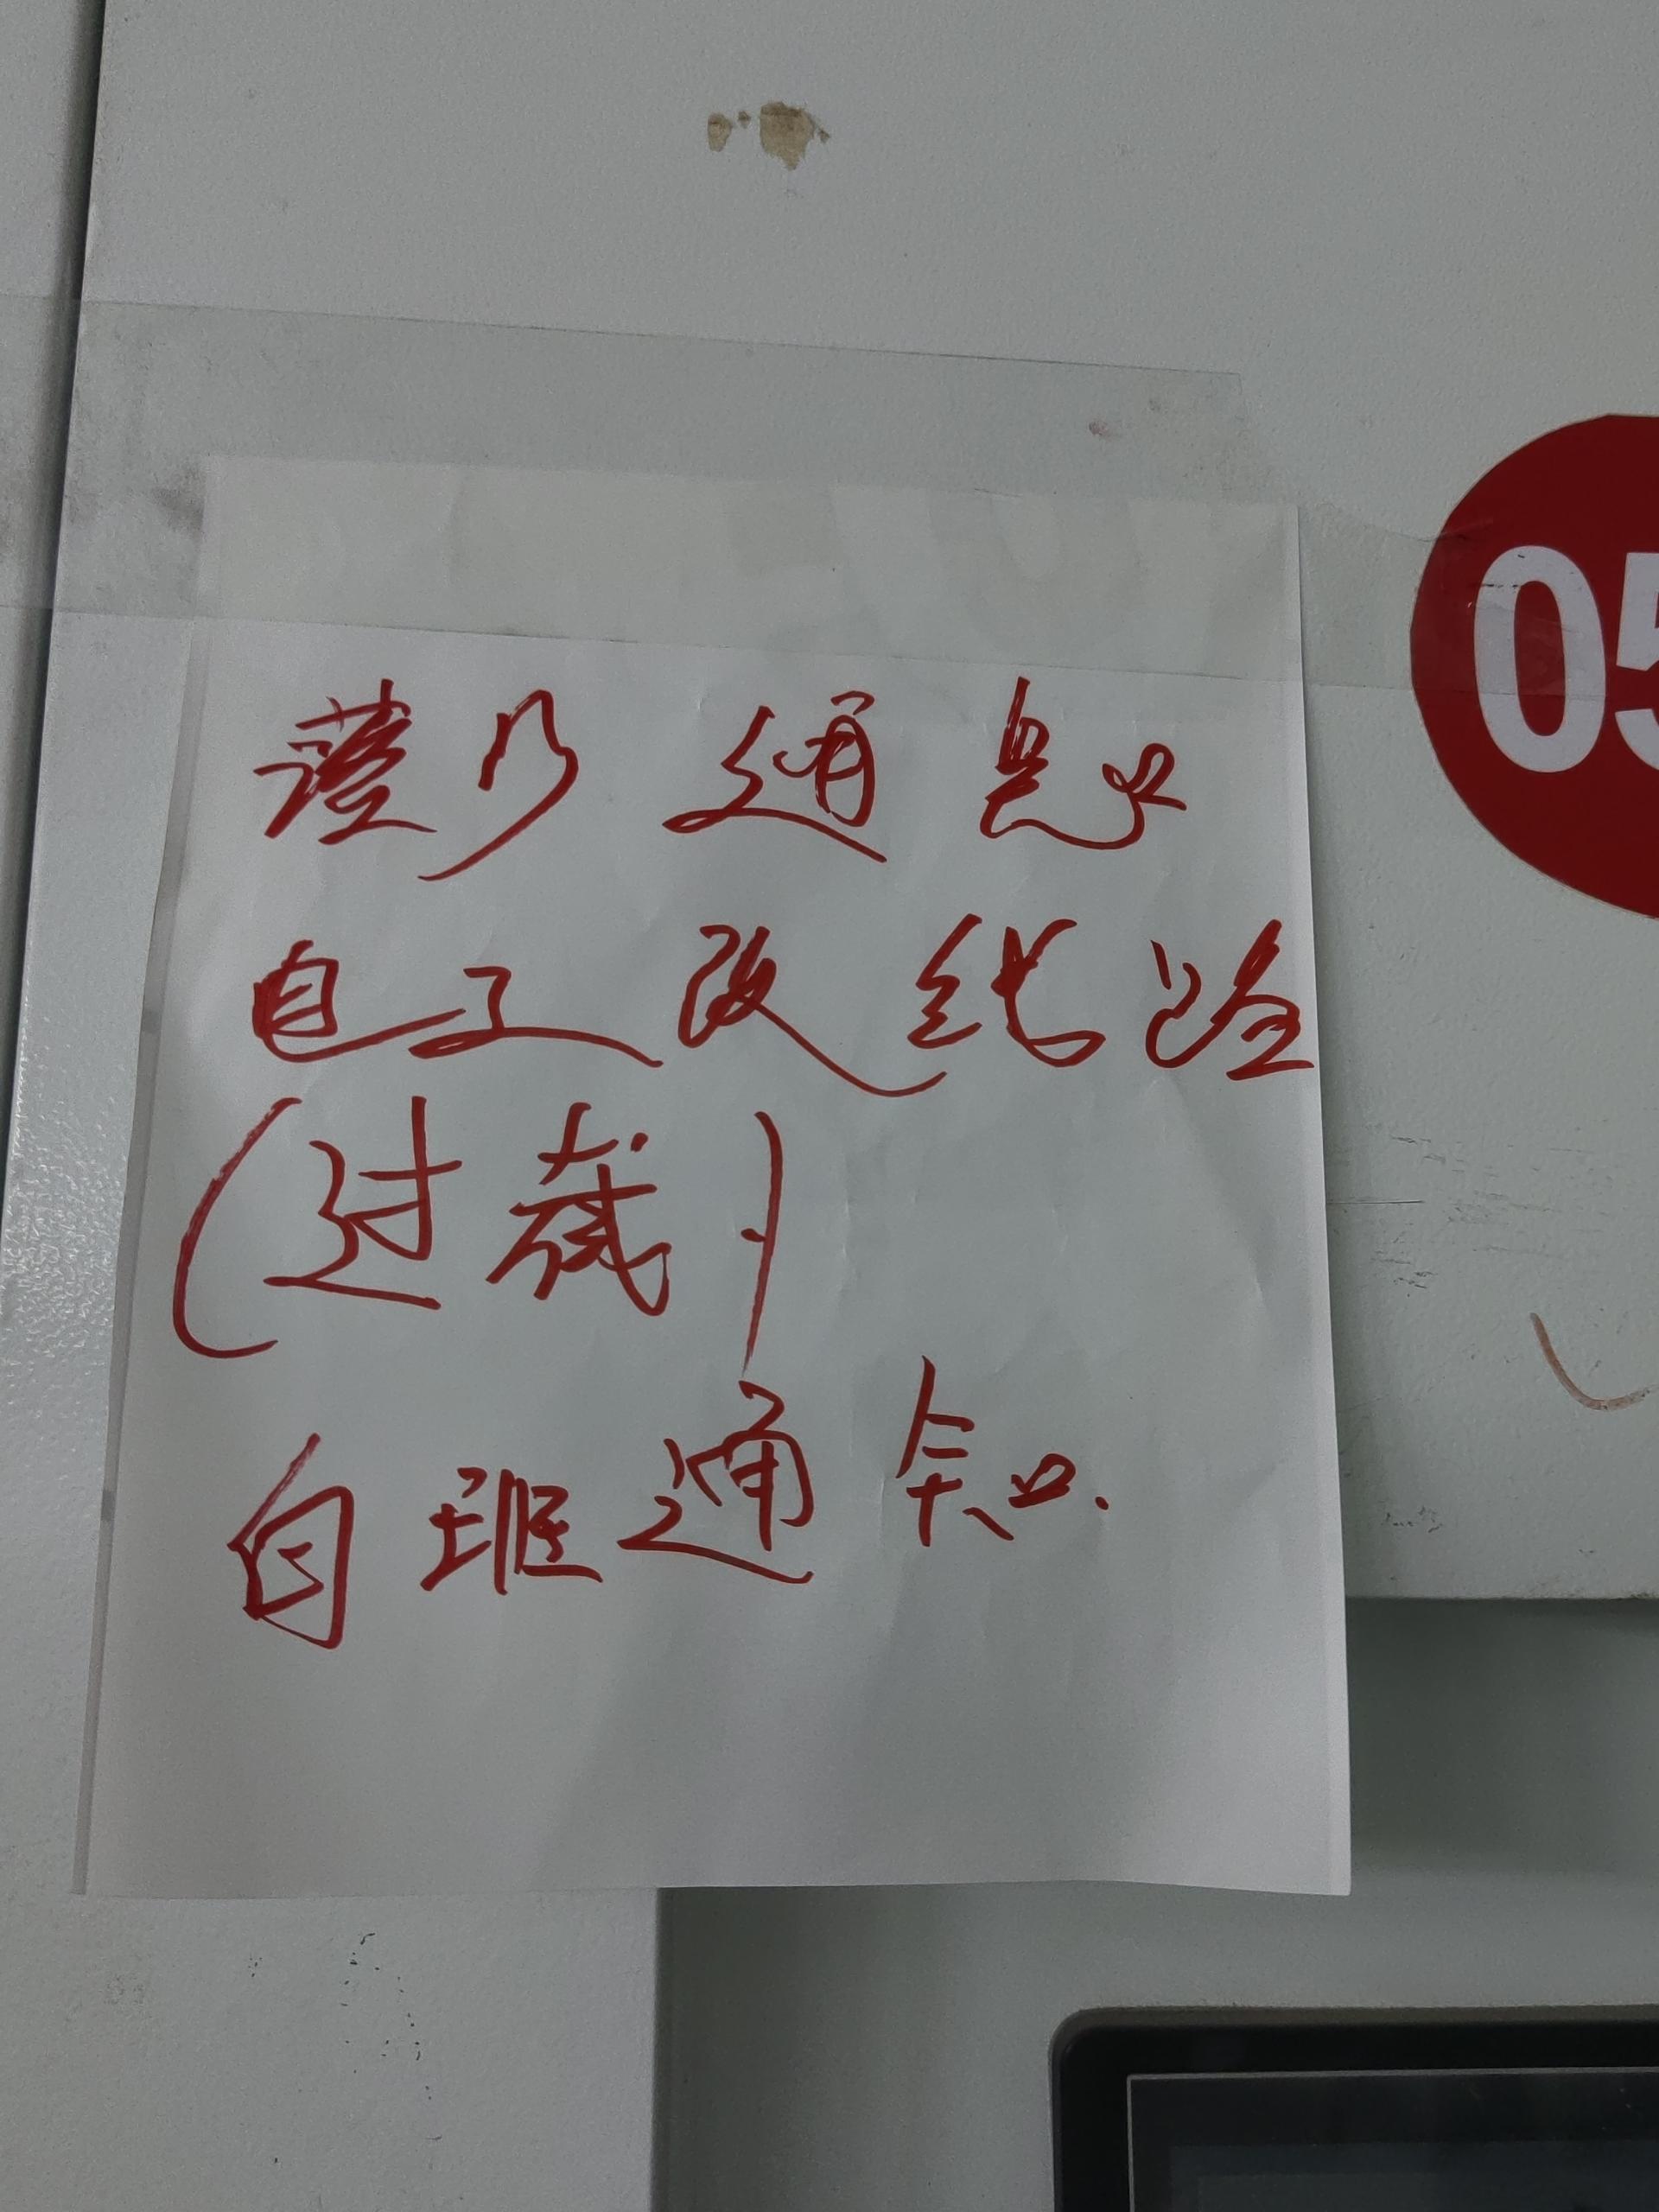 通
电工改线路
(过载)
白班通知.
05